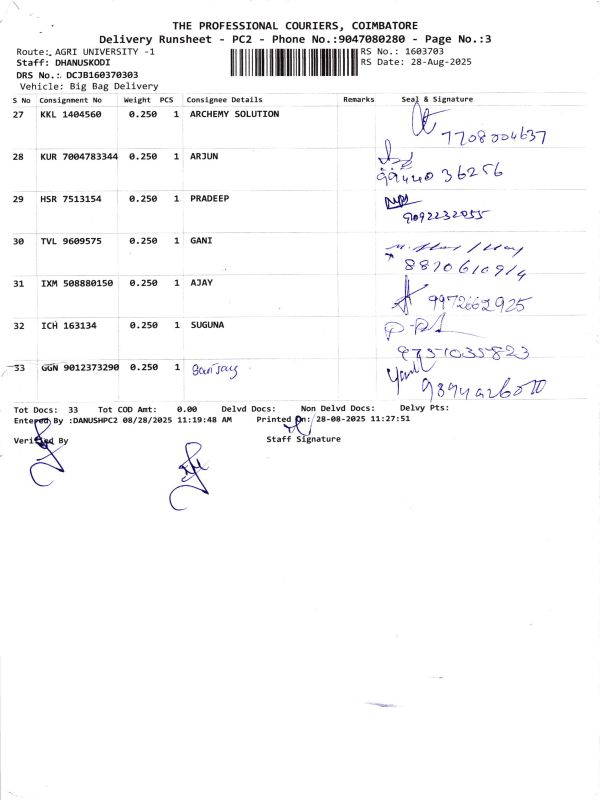 THE PROFESSIONAL COURIERS, COIMBATORE
Delivery Runsheet - PC2 - Phone No.:9047080280 - Page No.:3
Route:. AGRI UNIVERSITY -1 RS No.: 1603703
Staff: DHANUSKODI RS Date: 28-Aug-2025
DRS No.: DCJB160370303
Vehicle: Big Bag Delivery
S No Consignment No Weight PCS Consignee Details Remarks Seal & Signature
27 KKL 1404560 0.250 1 ARCHEMY SOLUTION
7708004637
28 KUR 7004783344 0.250 1 ARJUN
99440 36256
29 HSR 7513154 0.250 1 PRADEEP
9092232055
30 TVL 9609575 0.250 1 GANI
31 IXM 508880150 0.250 1 AJAY
9972662925
32 ICH 163134 0.250 1 SUGUNA
9751035823
33 GGN 9012373290 0.250 1
Tot Docs: 33 Tot COD Amt: 0.00 Delvd Docs: Non Delvd Docs: Delvy Pts:
Entered By :DANUSHPC2 08/28/2025 11:19:48 AM Printed On: 28-08-2025 11:27:51
Verified By Staff Signature